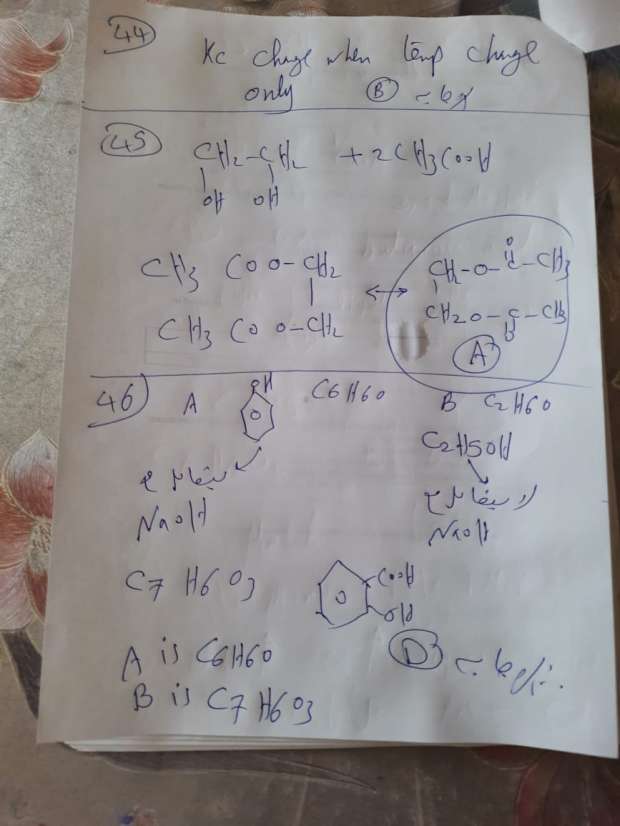 44
Kc change when temp change
only B
45
CH2-CH2 + 2CH3COOH
OH OH
CH3 COO-CH2 ↔ CH2-O-C-CH3
O
CH3 COO-CH2 CH2O-C-CH3
O
A
46 A OH C6H6O B C2H6O
C2H5OH
يتفاعل مع
NaOH
لا يتفاعل مع
NaOH
C7H6O3 COOH
OH
A is C6H6O D
B is C7H6O3